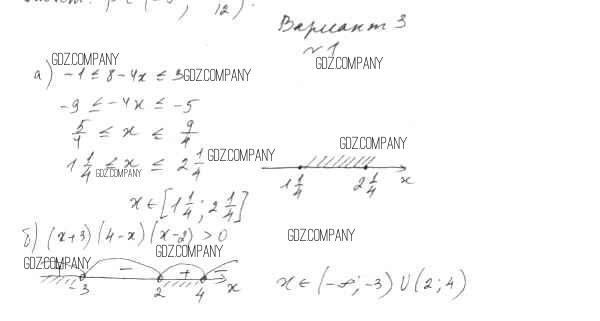 12).
Вариант 3
№1
GDZ.COMPANY
GDZ.COMPANY
а) -1 ≤ 8 - 4x ≤ 3
GDZ.COMPANY
-9 ≤ -4x ≤ -5
5/4 ≤ x ≤ 9/4
GDZ.COMPANY
1 1/4 ≤ x ≤ 2 1/4
GDZ.COMPANY
GDZ.COMPANY
1 1/4 2 1/4 x
x ∈ [1 1/4; 2 1/4]
б) (x+3)(4-x)(x-2) > 0
GDZ.COMPANY
GDZ.COMPANY
GDZ.COMPANY
+ - + -
-3 2 4 x
x ∈ (-∞; -3) ∪ (2; 4)